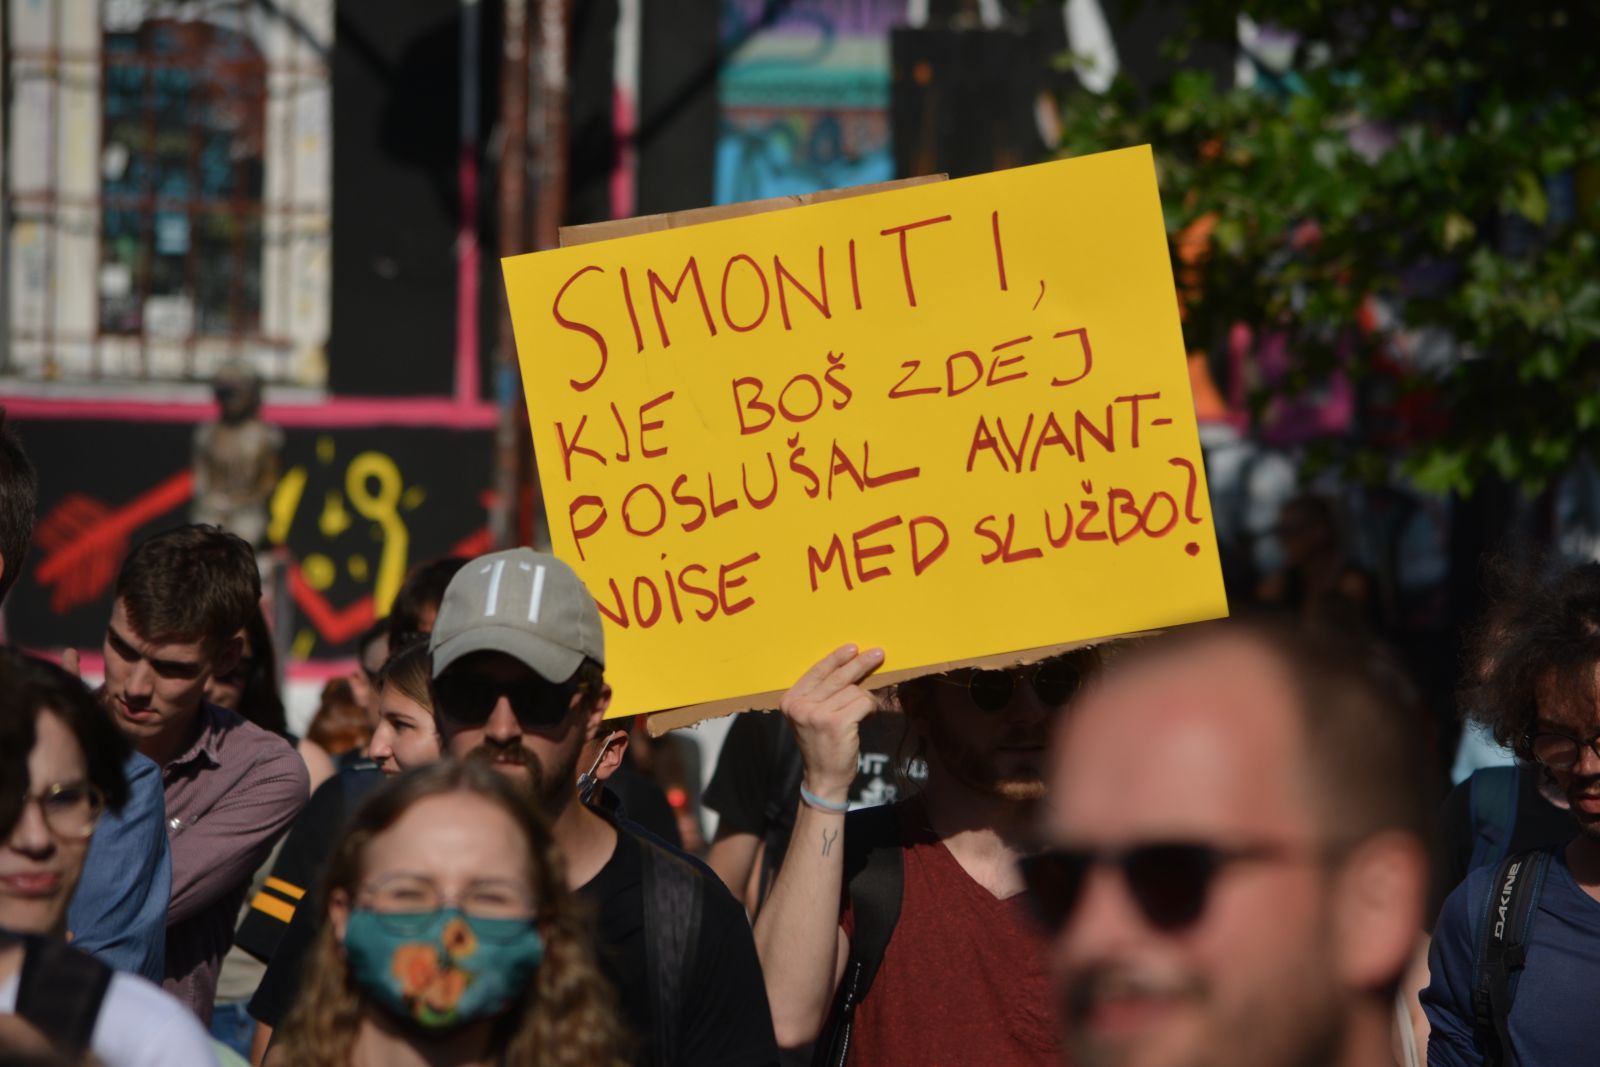 SIMONITI,
KJE BOŠ ZDEJ
POSLUŠAL AVANT-
NOISE MED SLUŽBO?
11
DAKINE